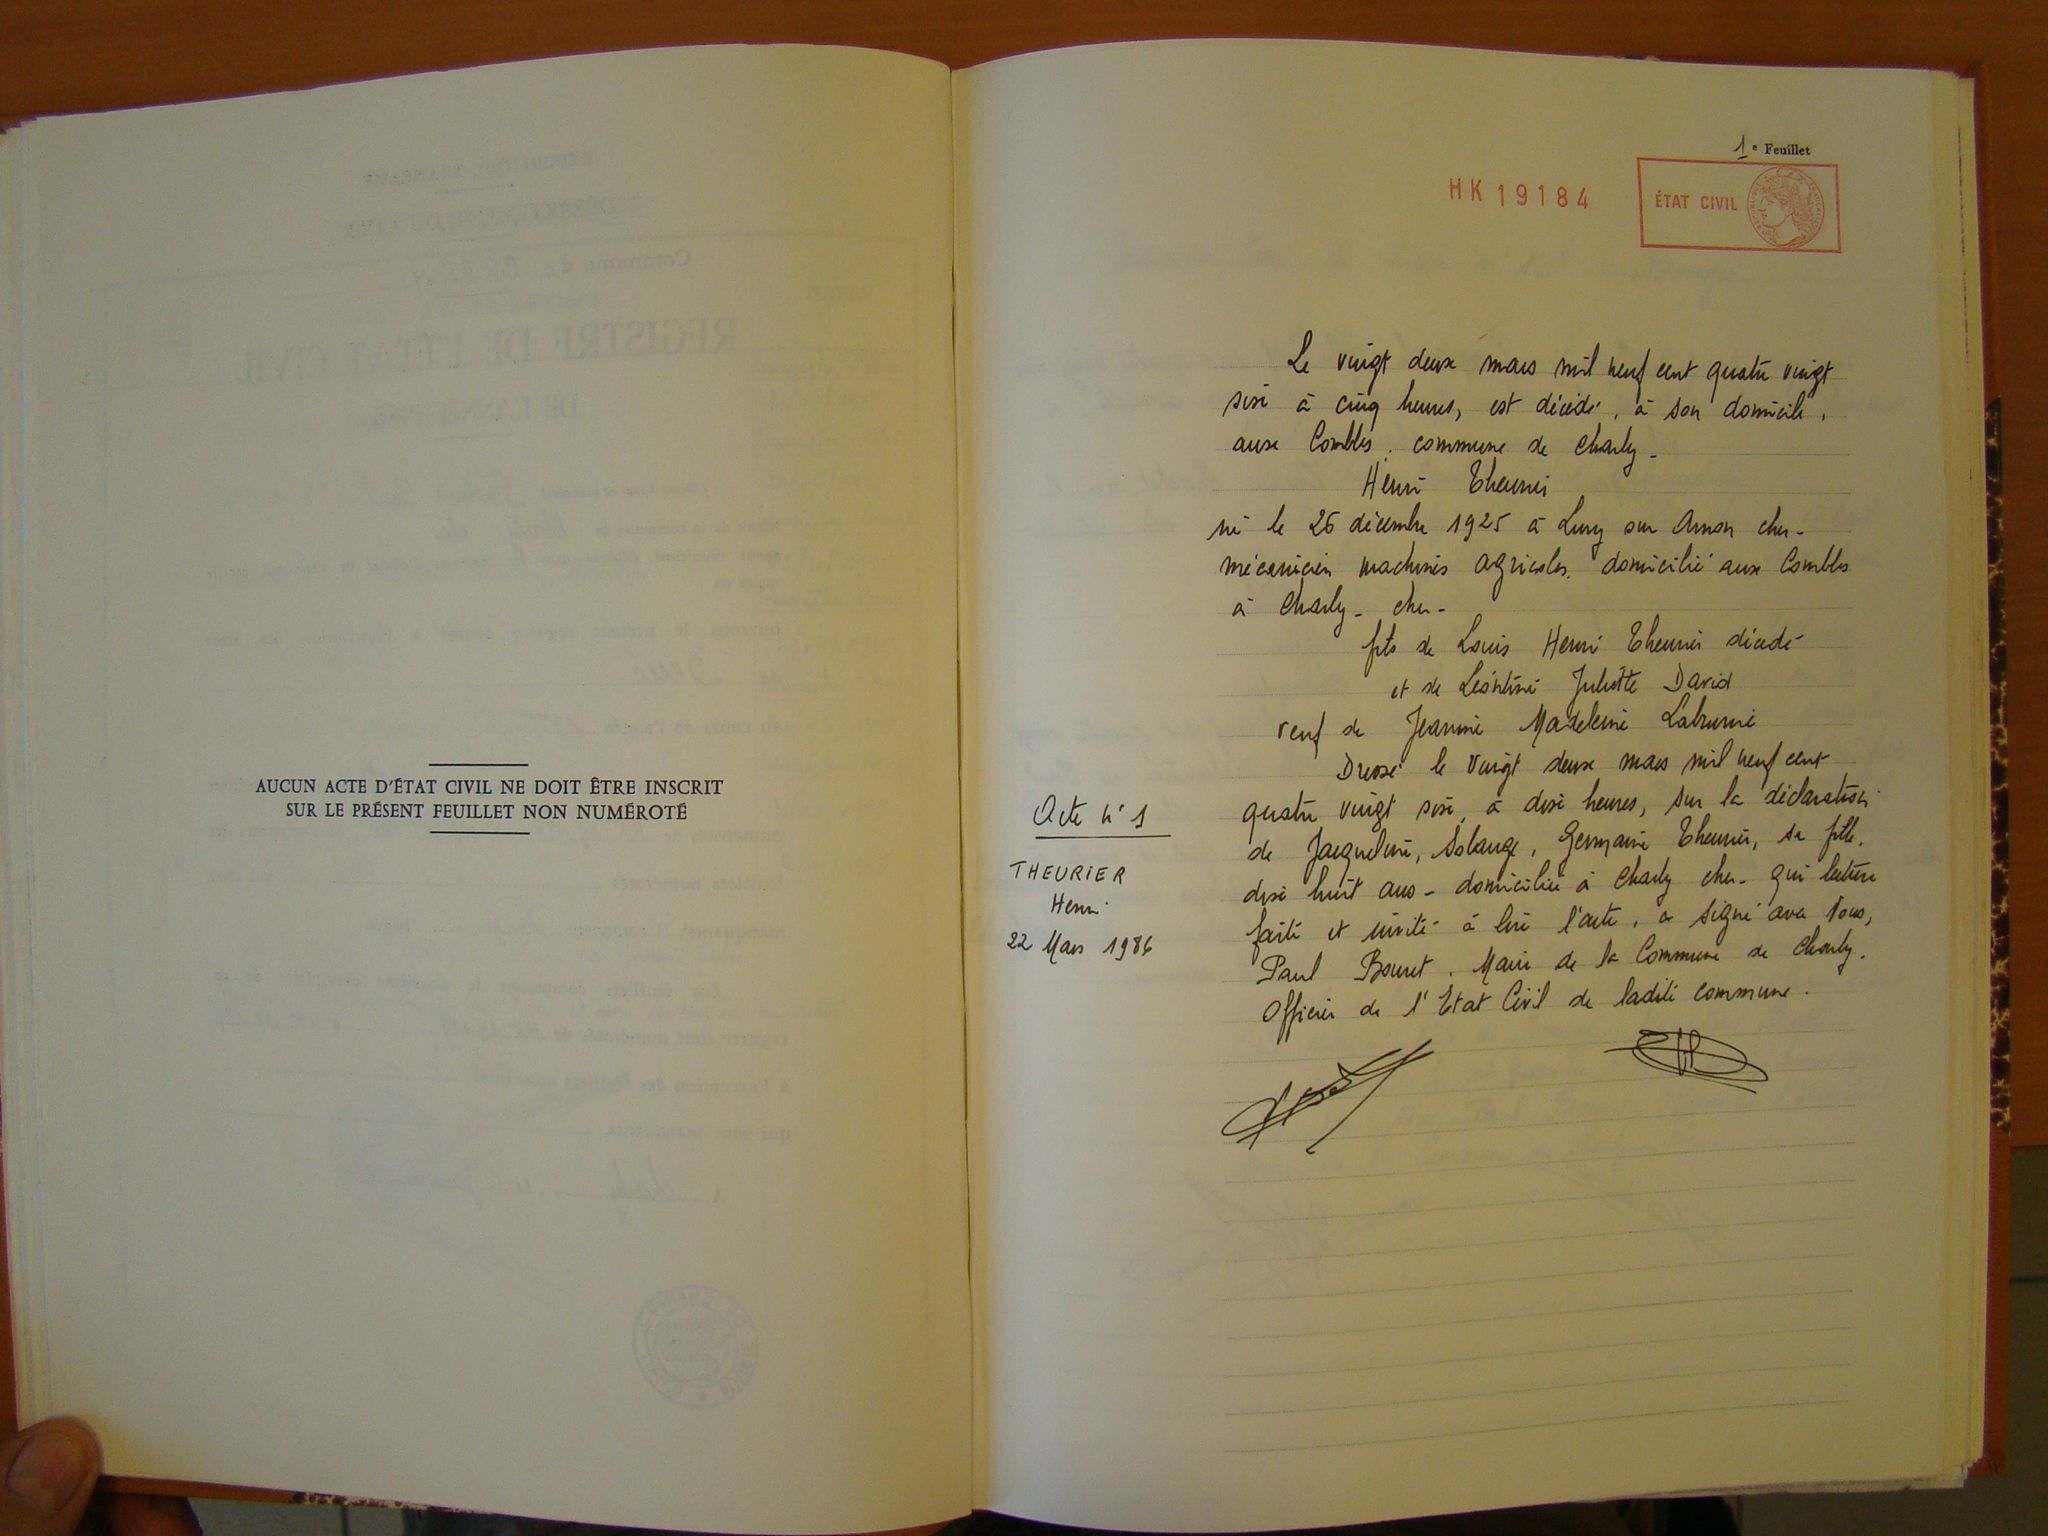 AUCUN ACTE D'ÉTAT CIVIL NE DOIT ÊTRE INSCRIT
SUR LE PRÉSENT FEUILLET NON NUMÉROTÉ
1e Feuillet
HK19184
ÉTAT CIVIL
Le vingt deux mars mil neuf cent quatre vingt
six à cinq heures, est décédé, à son domicile,
aux Combles, commune de Charly -
Henri Theurier
né le 26 décembre 1925 à Lury sur Arnon cher -
mécanicien machines agricoles, domicilié aux Combles
à Charly - cher -
fils de Louis Henri Theurier décédé
et de Léontine Juliette David
veuf de Jeannine Madeleine
Dressé le vingt deux mars mil neuf cent
quatre vingt six, à dix heures, sur la déclaration
de Jacqueline, Solange, Germaine Theurier, sa fille,
dix huit ans - domiciliée à Charly cher - qui lecture
faite et invitée à lire l'acte, a signé avec Nous,
Paul Bouret, Maire de la Commune de Charly,
Officier de l'Etat Civil de ladite commune.
Acte n° 1
THEURIER
Henri
22 Mars 1986
REGISTRE DE L'ÉTAT CIVIL